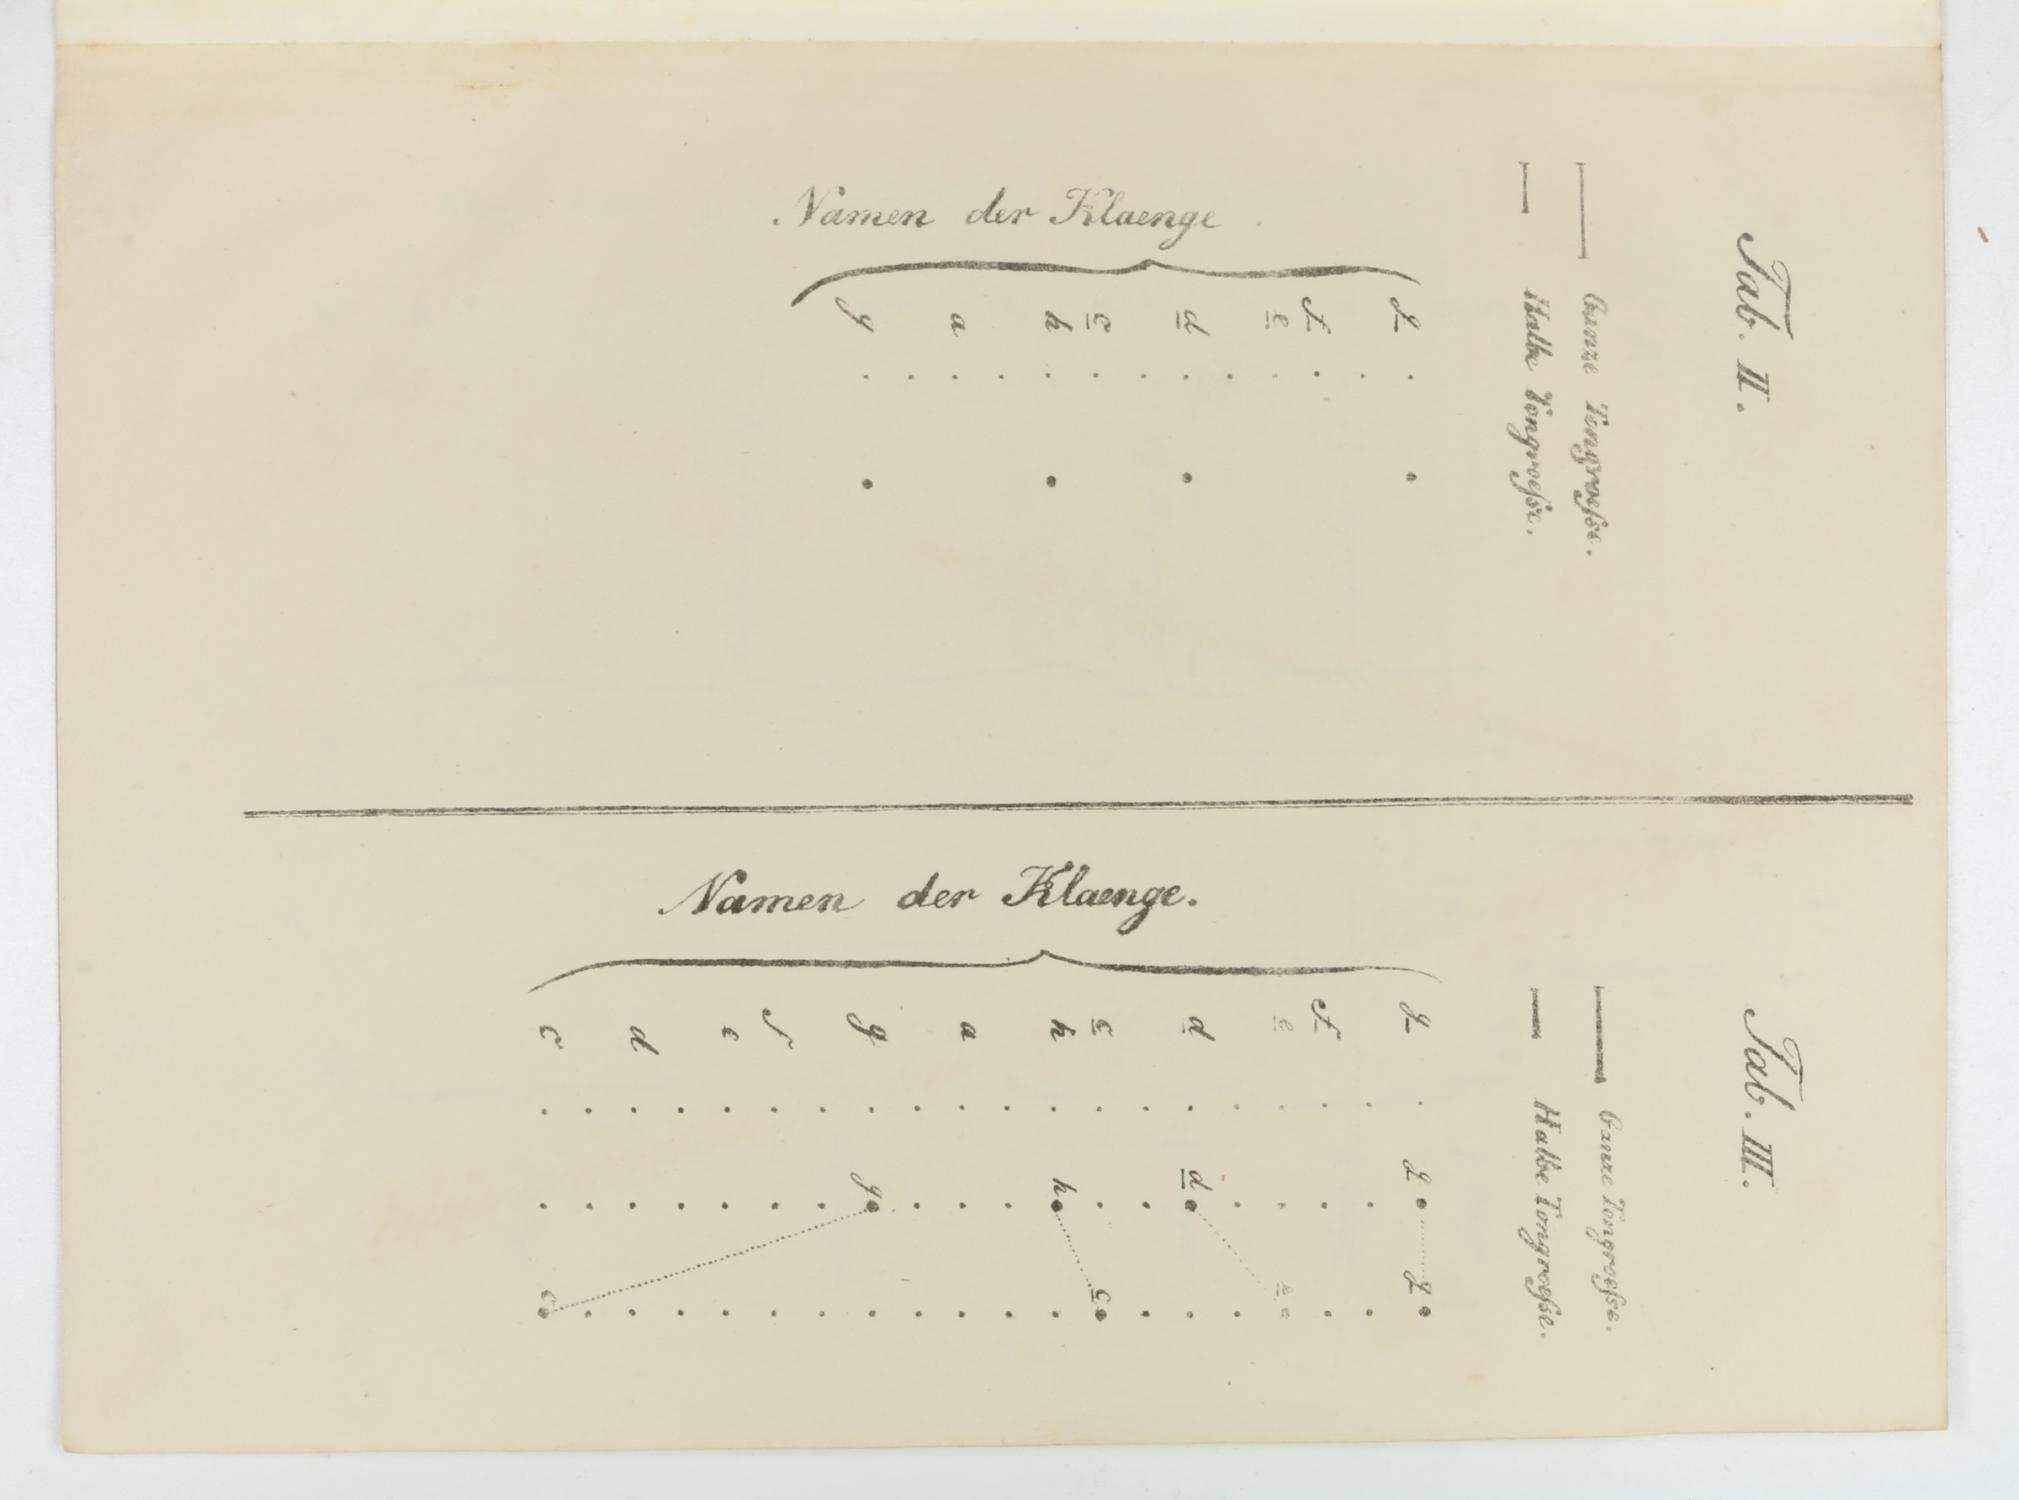 Tab. II.
Ganze Tongroeſse.
Halbe Tongroeſse.
Namen der Klaenge
g a h c d e f g
Tab. III.
Ganze Tongroeſse.
Halbe Tongroeſse.
Namen der Klaenge.
c d e f g a h c d e f g
g h d g
c c e g